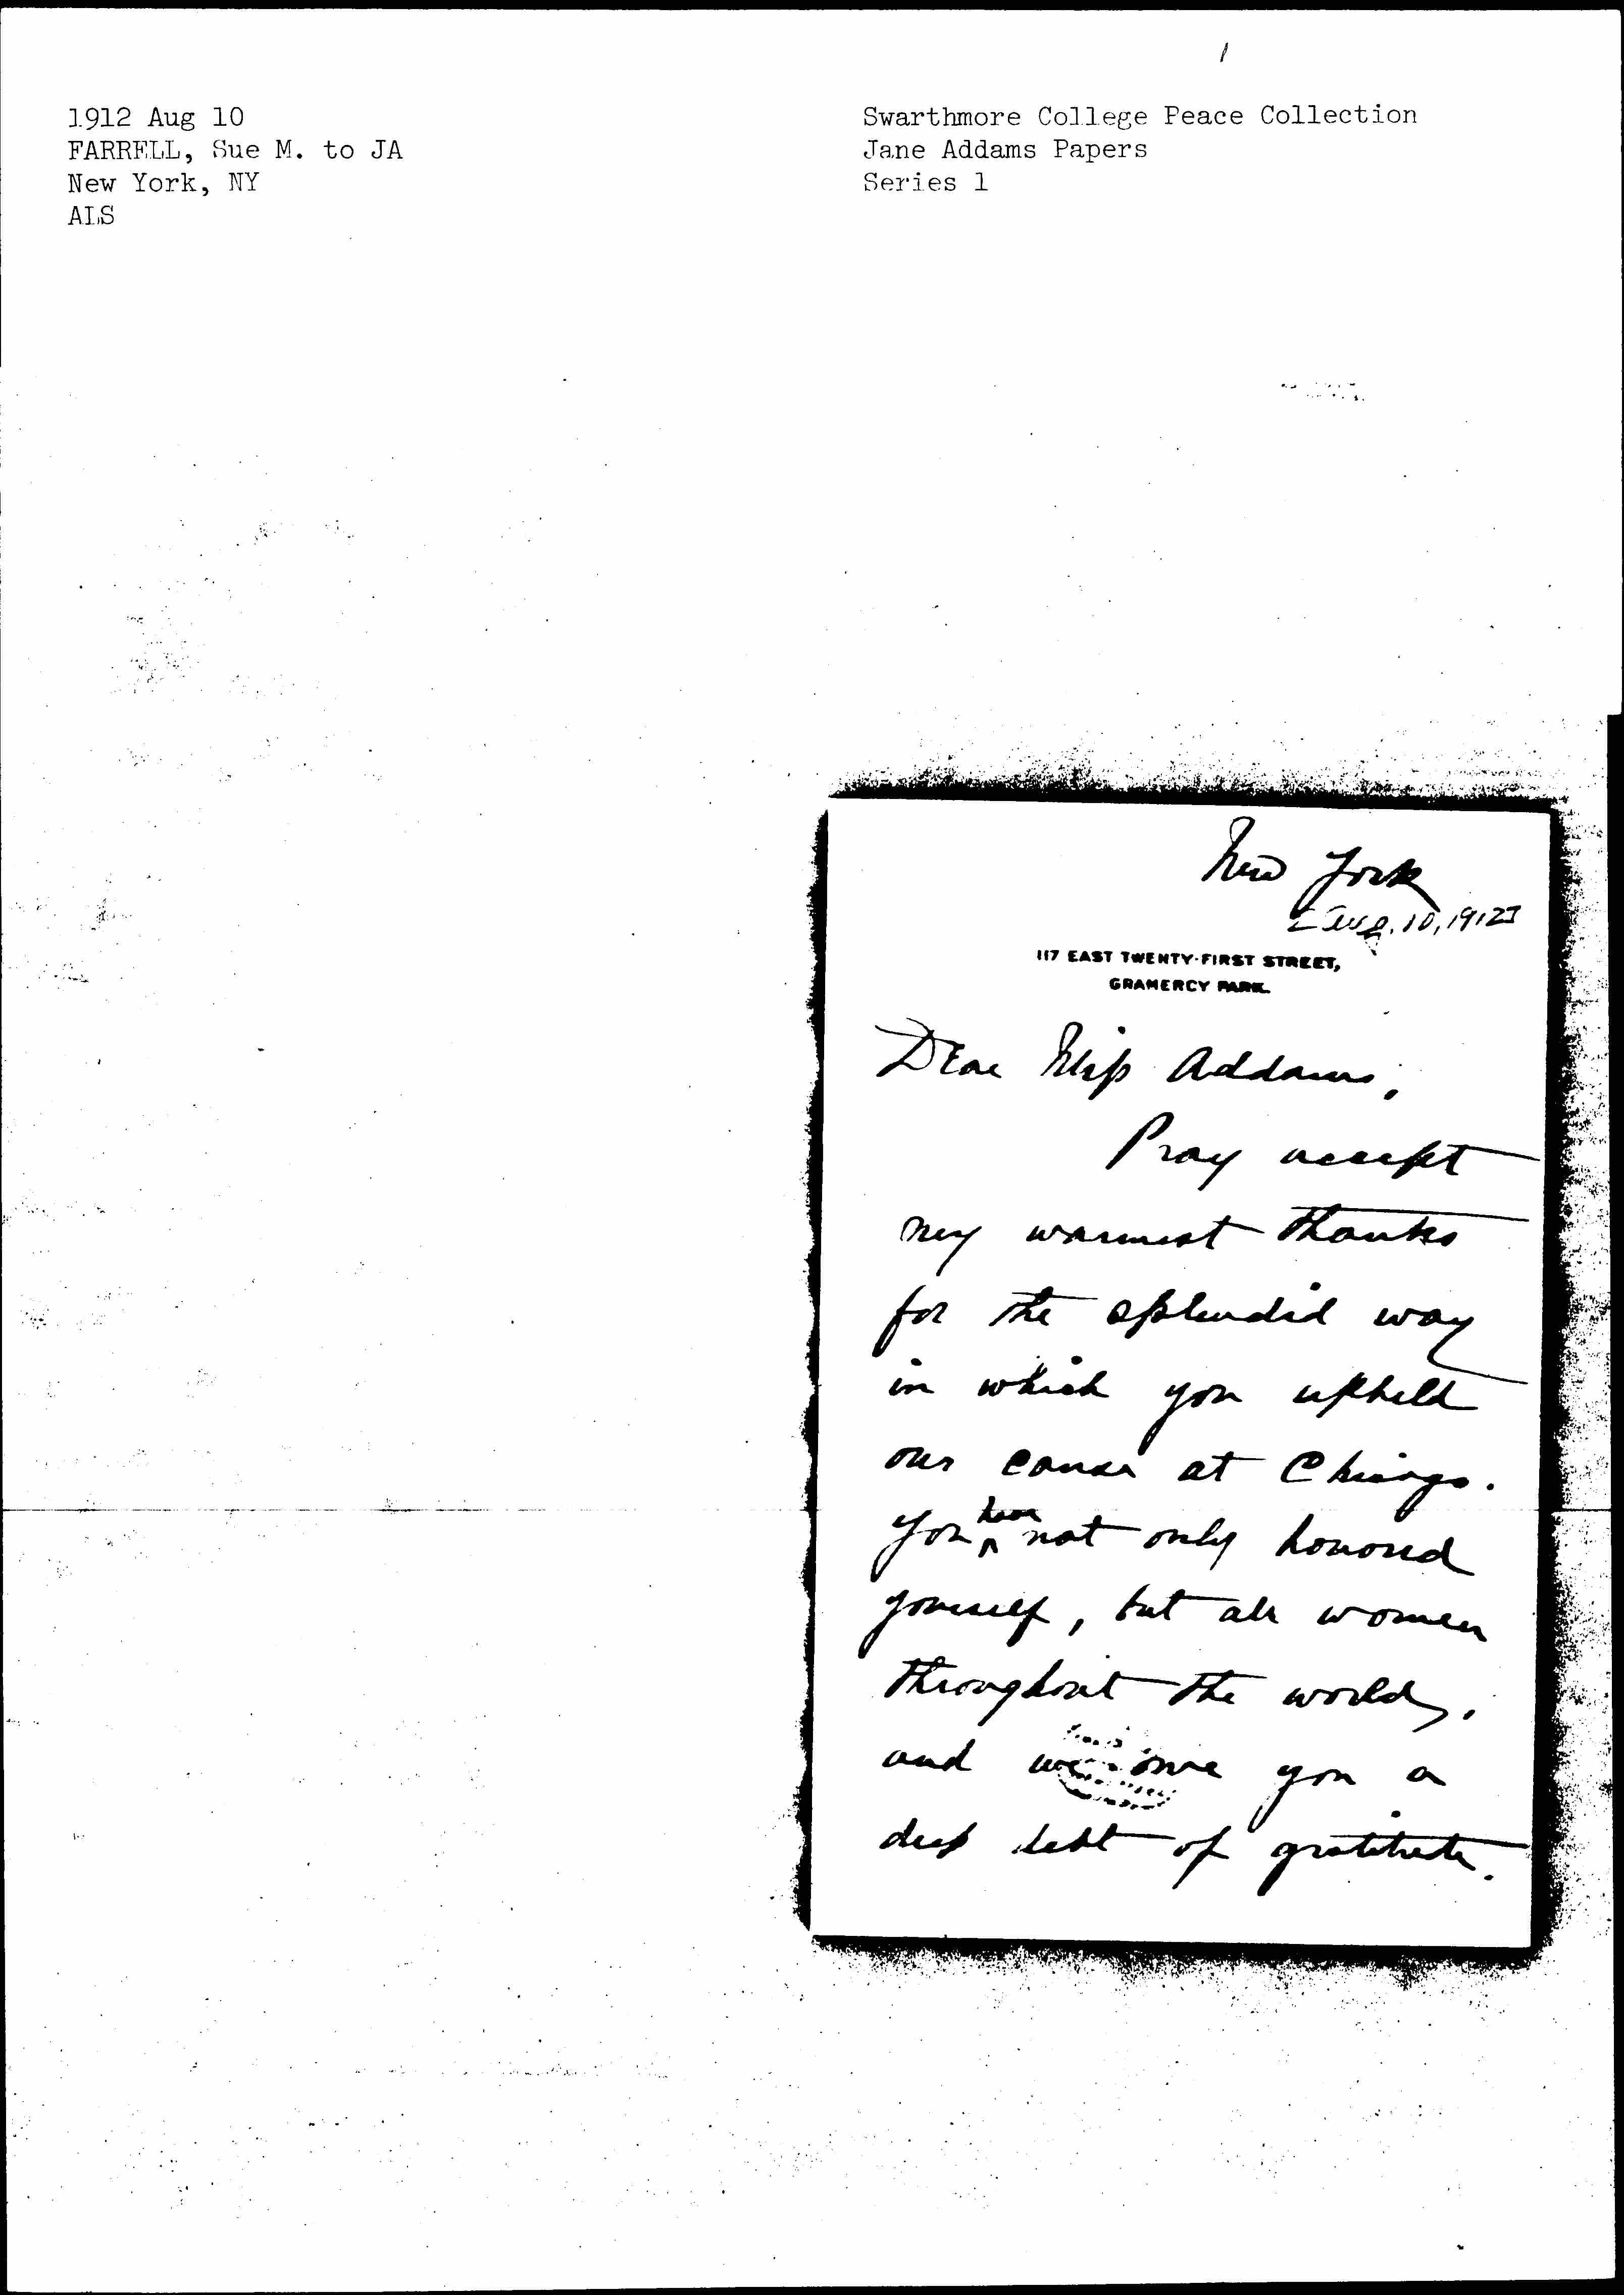 1
1912 Aug 10
FARRELL, Sue M. to JA
New York, NY
ALS
Swarthmore College Peace Collection
Jane Addams Papers
Series 1
New York
[Aug. 10, 1912]
117 EAST TWENTY-FIRST STREET,
GRAMERCY PARK.
Dear Miss Addams,
Pray accept
my warmest thanks
for the splendid way
in which you upheld
our cause at Chicago.
You have not only honored
yourself, but all women
throughout the world,
and we owe you a
deep debt of gratitude.